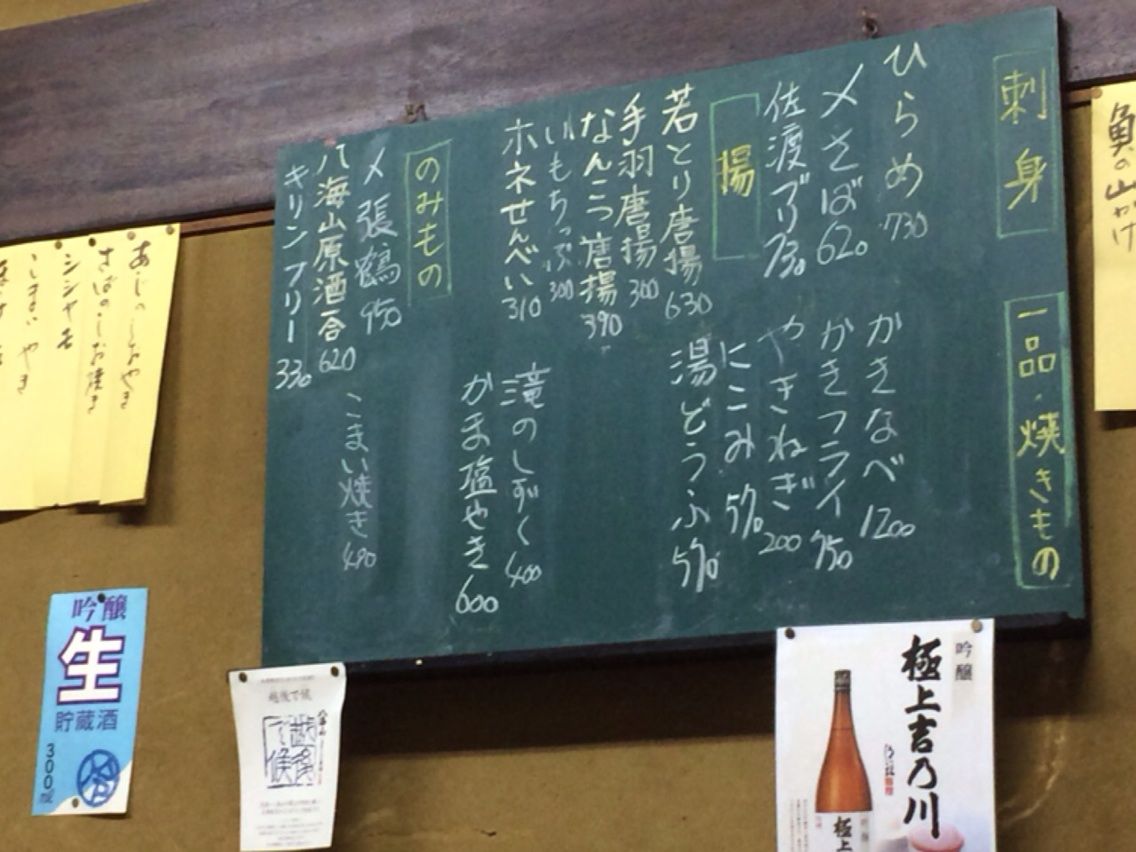 刺身
ひらめ 730
〆さば 620
佐渡ぶり 730
一品・焼きもの
かきなべ 1200
かきフライ 750
やきねぎ 200
にこみ 570
湯どうふ 570
揚
若とり唐揚 630
手羽唐揚 300
なんこつ唐揚 390
いもちっぷ 300
ホネせんべい 310
滝のしずく 400
かま塩やき 600
のみもの
〆張鶴 950
八海山原酒一合 620
キリンフリー 330
こまい焼き 490
魚の山かけ
あじのしおやき
さばのしお焼き
シシャモ
吟醸
生
貯蔵酒
300ml
越後で候
越後で候
吟醸
極上吉乃川
極上